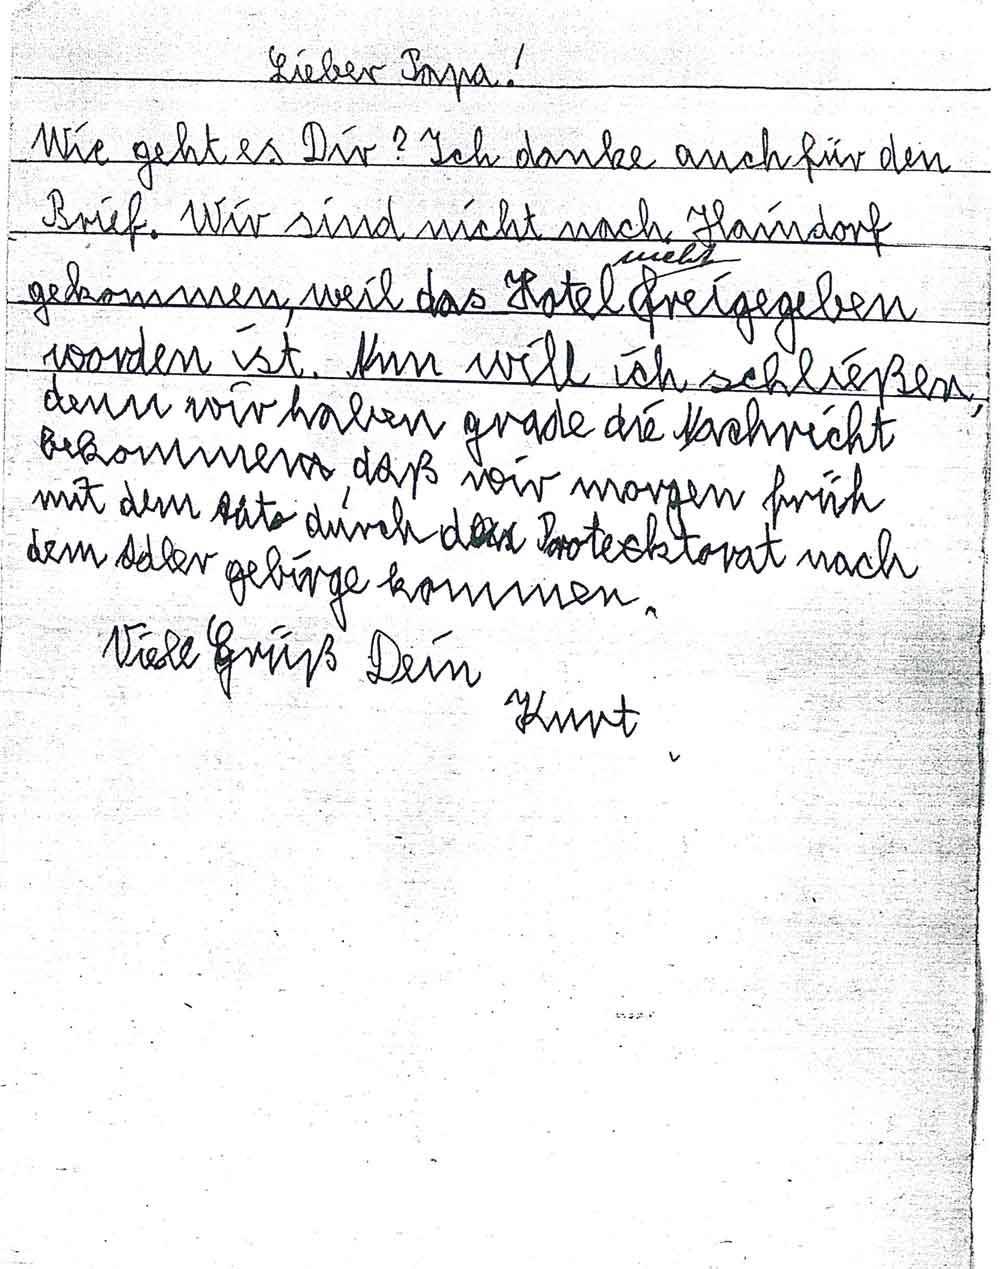 Lieber Papa!
Wie geht es Dir? Ich danke auch für den
Brief. Wir sind nicht nach Haindorf
nicht
gekommen, weil das Hotel freigegeben
worden ist. Nun will ich schließen,
denn wir haben grade die Nachricht
bekommen, daß wir morgen früh
mit dem Auto durch das Protecktorat nach
dem Adler gebirge kommen.
Viele Grüß Dein
Kurt